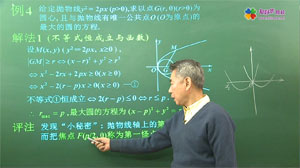 例4 给定抛物线y²=2px(p>0),求以点G(r,0)(r>0)为
圆心,且与抛物线有唯一公共点O(O为原点)的
最大的圆的方程.
解法1 (不等式恒成立与函数)
设M(x,y)(y²=2px, x≥0),
GM≥r⇔(x-r)²+y²≥r²
⇔x²-2rx+2px≥0(x≥0)
⇔x-2r+2p≥0(x>0)
不等式①恒成立⇔2(r-p)≤0⇔r≤p
最大圆的方程为(x-p)²+y²=
评注 发现"小秘密":抛物线轴上的第
而把焦点F(p/2,0)称为第一